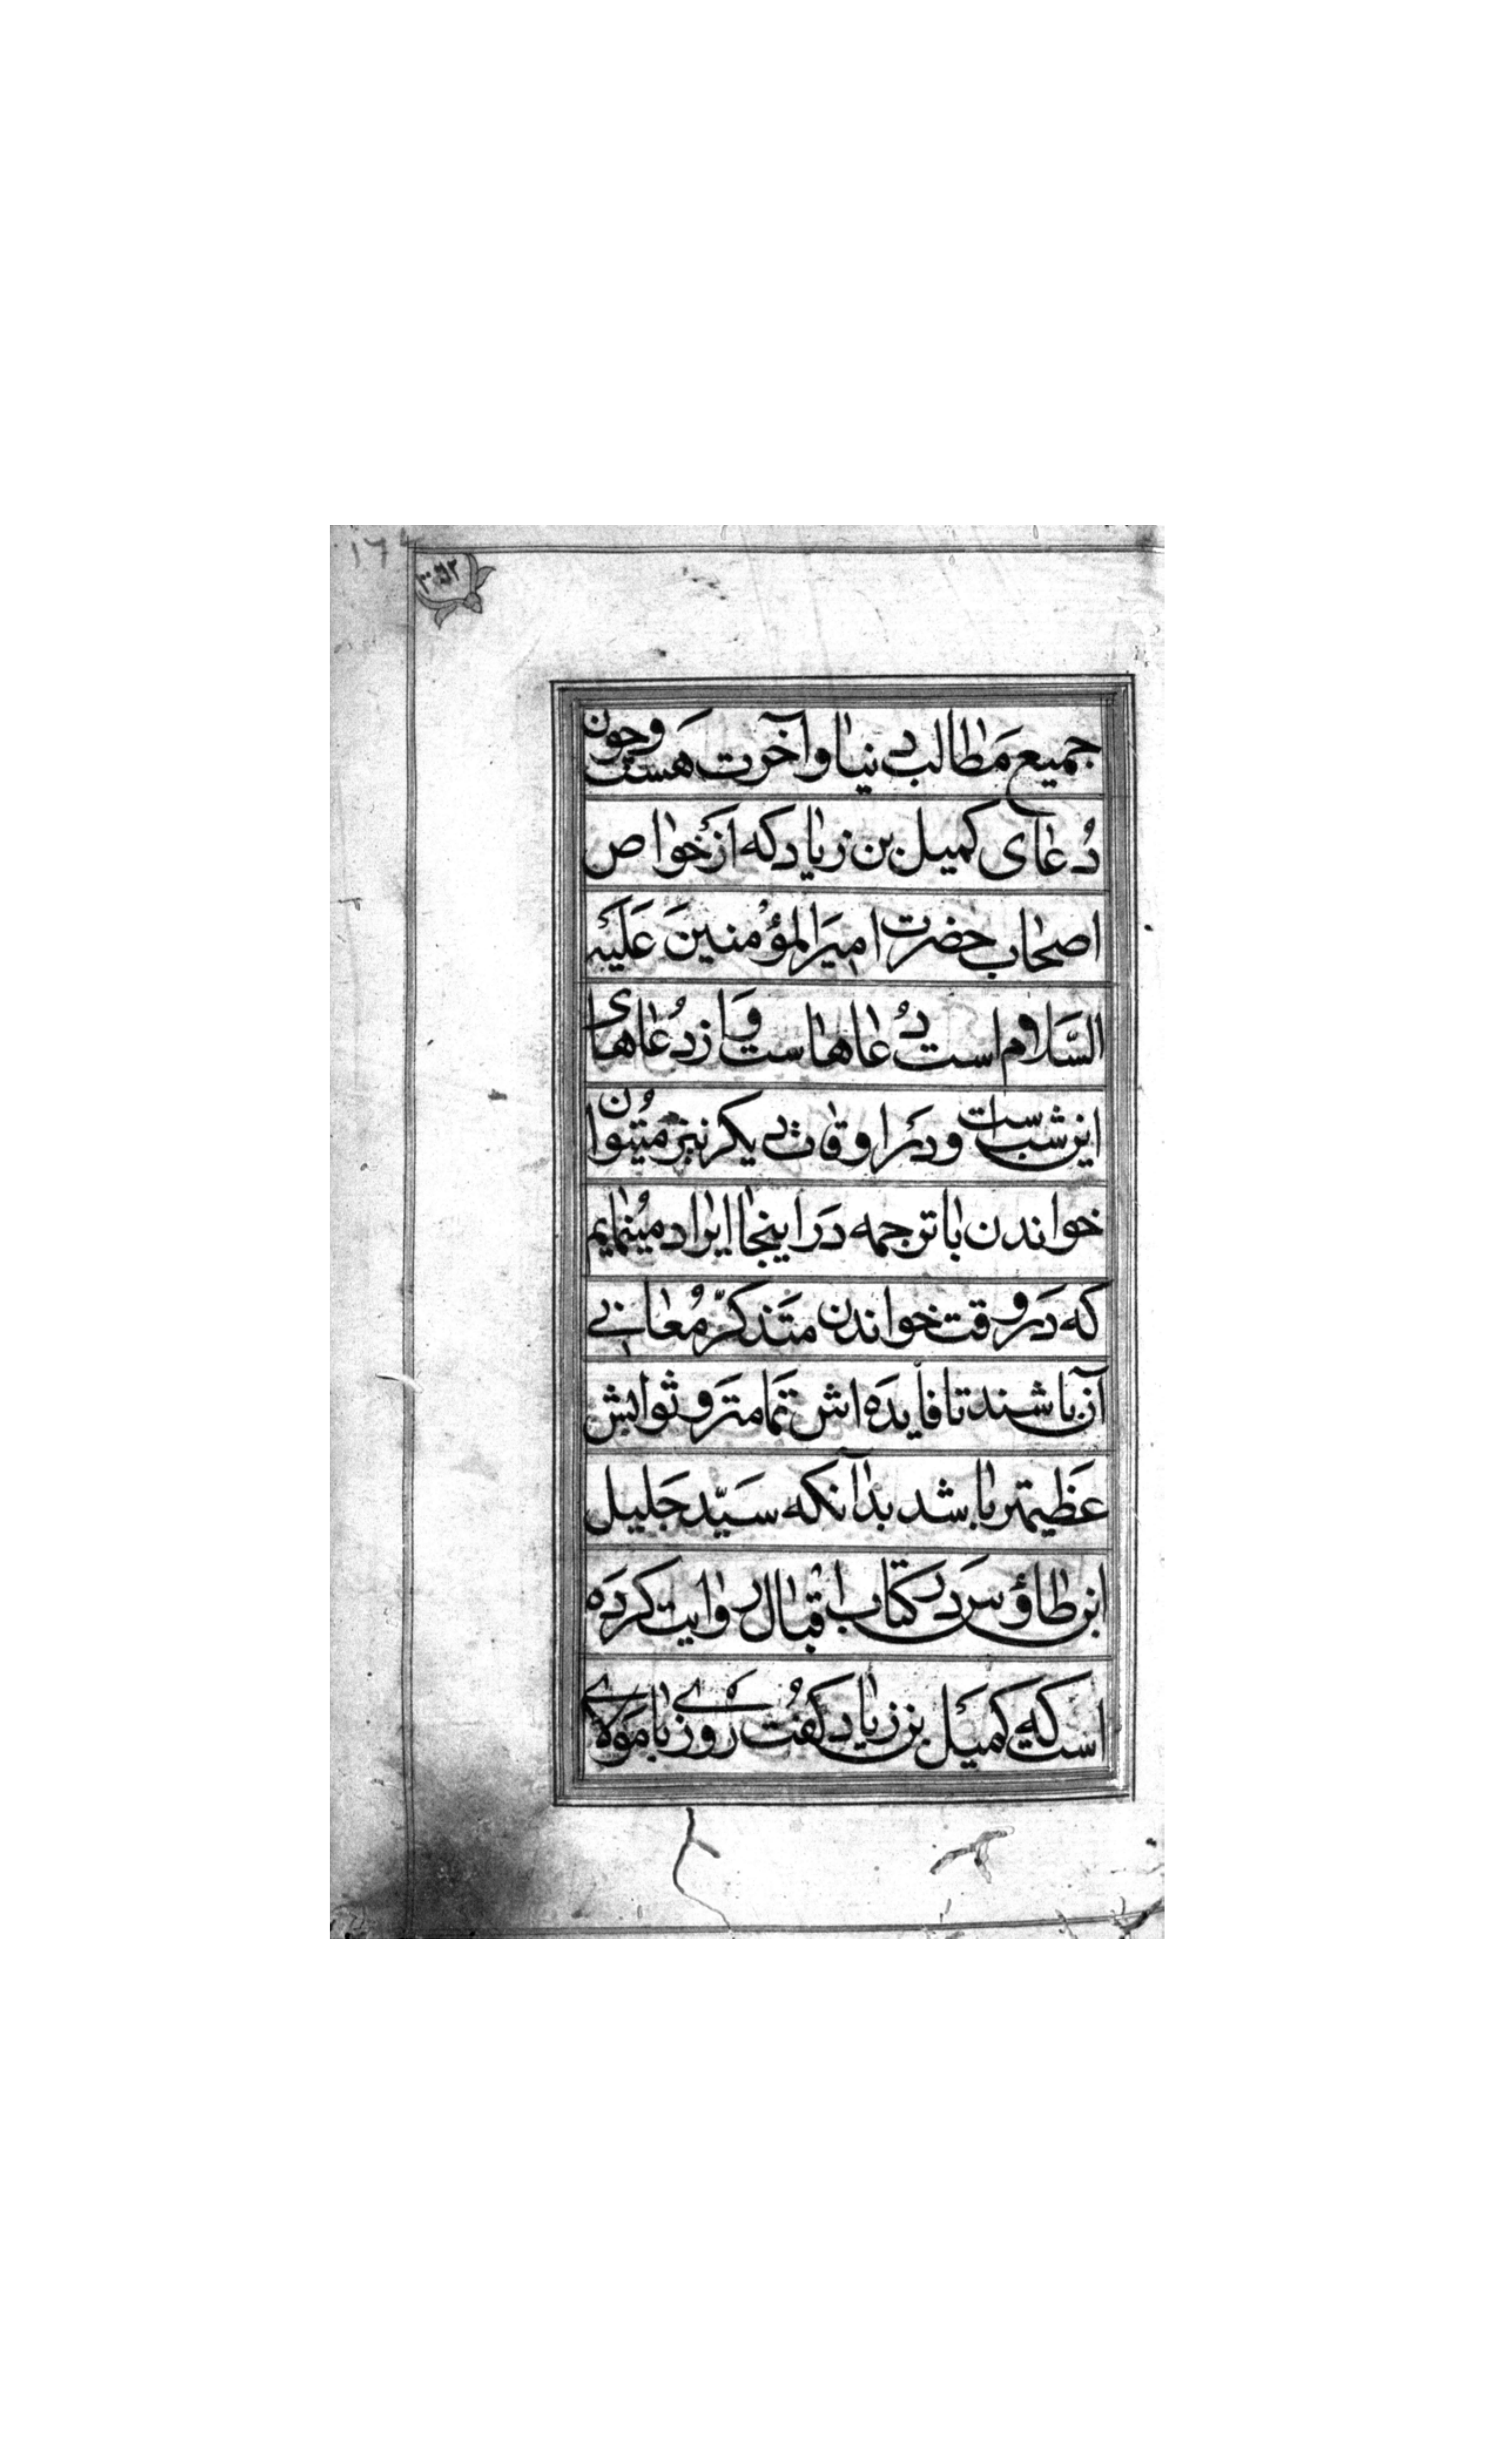 جمیع مَطالب دنیا و آخرت هست و چون
دُعای کمیل بن زیاد که از خواص
اصحاب حضرت امیرالمؤمنینَ عَلَیْه
السَّلام است دُعاهاست و از دُعاهای
این شب است و در اوقات دیگر نیز میتوان
خواندن با ترجمه دَر اینجا ایراد مینمایم
که دَر وقت خواندن متَذکّر مُعانی
آن باشند تا فایدَه اش تمامتَر و ثوابش
عَظیمتر باشد بدانکه سَیّد جَلیل
ابن طاؤس در کتاب اقبال روایت کردَه
است که کمیَل بن زیاد کفُت روزی با مَولای